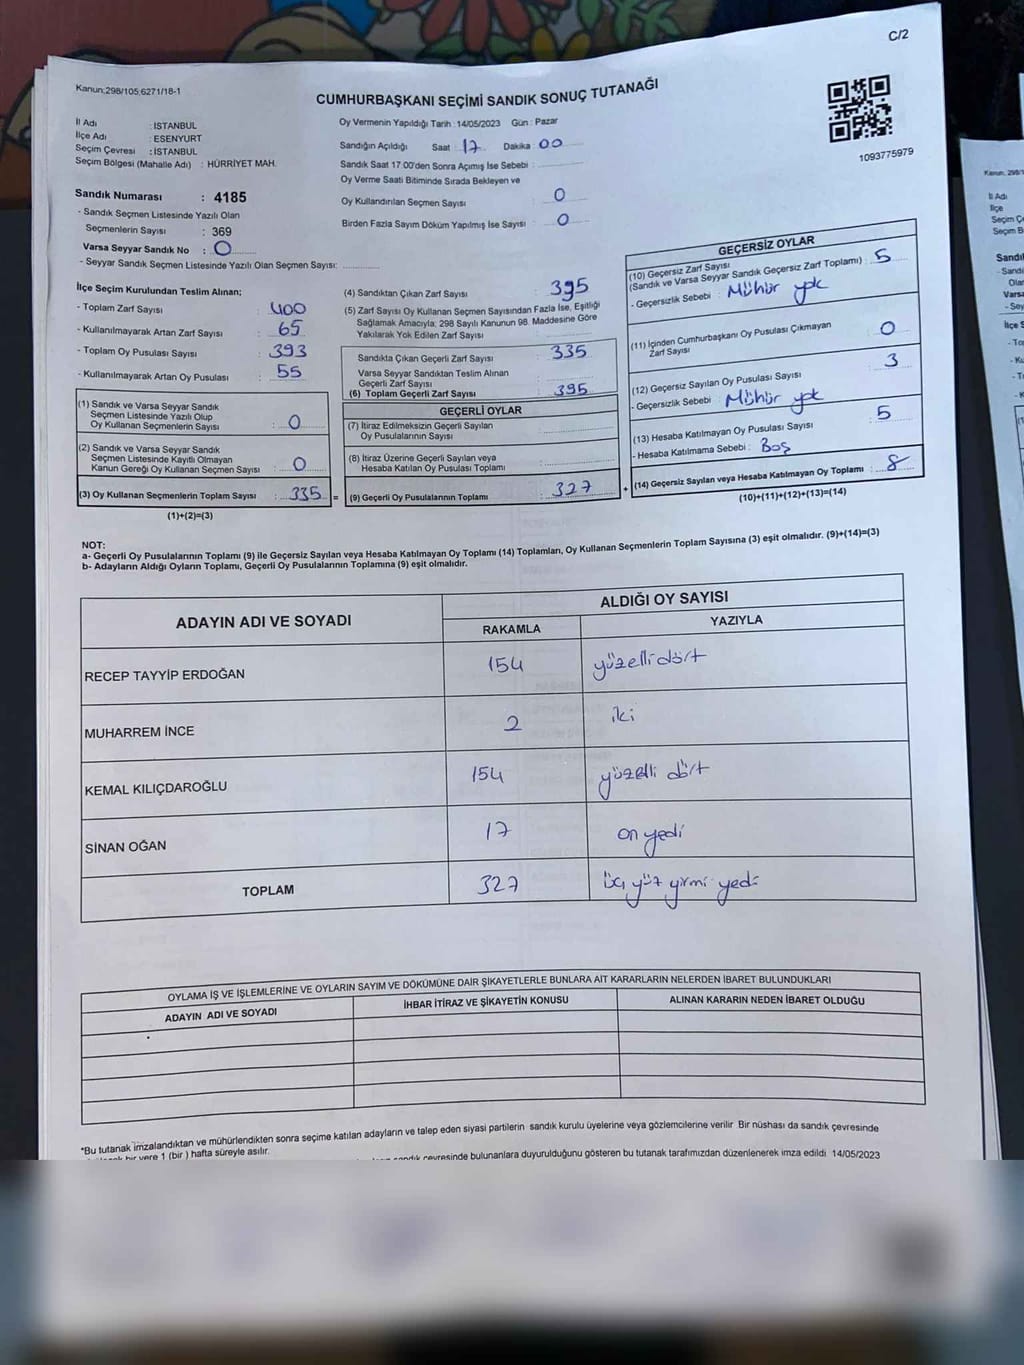 C/2
Kanun;298/105;6271/18-1
CUMHURBAŞKANI SEÇİMİ SANDIK SONUÇ TUTANAĞI
İl Adı : İSTANBUL
İlçe Adı : ESENYURT
Seçim Çevresi : İSTANBUL
Seçim Bölgesi (Mahalle Adı) : HÜRRİYET MAH.
Oy Vermenin Yapıldığı Tarih :14/05/2023 Gün : Pazar
Sandığın Açıldığı Saat 17 Dakika 00
Sandık Saat 17:00'den Sonra Açımış İse Sebebi :
Oy Verme Saati Bitiminde Sırada Bekleyen ve
Oy Kullandırılan Seçmen Sayısı : 0
Birden Fazla Sayım Döküm Yapılmış İse Sayısı : 0
1093775979
Sandık Numarası : 4185
- Sandık Seçmen Listesinde Yazılı Olan
Seçmenlerin Sayısı : 369
Varsa Seyyar Sandık No : 0
- Seyyar Sandık Seçmen Listesinde Yazılı Olan Seçmen Sayısı:
İlçe Seçim Kurulundan Teslim Alınan;
- Toplam Zarf Sayısı : 400
- Kullanılmayarak Artan Zarf Sayısı : 65
- Toplam Oy Pusulası Sayısı : 393
- Kullanılmayarak Artan Oy Pusulası : 55
(1) Sandık ve Varsa Seyyar Sandık
Seçmen Listesinde Yazılı Olup
Oy Kullanan Seçmenlerin Sayısı : 0
(2) Sandık ve Varsa Seyyar Sandık
Seçmen Listesinde Kayıtlı Olmayan
Kanun Gereği Oy Kullanan Seçmen Sayısı : 0
(3) Oy Kullanan Seçmenlerin Toplam Sayısı : 335 =
(1)+(2)=(3)
(4) Sandıktan Çıkan Zarf Sayısı : 395
(5) Zarf Sayısı Oy Kullanan Seçmen Sayısından Fazla İse, Eşitliği
Sağlamak Amacıyla; 298 Sayılı Kanunun 98. Maddesine Göre
Yakılarak Yok Edilen Zarf Sayısı :
Sandıkta Çıkan Geçerli Zarf Sayısı : 335
Varsa Seyyar Sandıktan Teslim Alınan
Geçerli Zarf Sayısı :
(6) Toplam Geçerli Zarf Sayısı : 395
GEÇERLİ OYLAR
(7) İtiraz Edilmeksizin Geçerli Sayılan
Oy Pusulalarının Sayısı :
(8) İtiraz Üzerine Geçerli Sayılan veya
Hesaba Katılan Oy Pusulası Toplamı :
(9) Geçerli Oy Pusulalarının Toplamı : 327 +
GEÇERSİZ OYLAR
(10) Geçersiz Zarf Sayısı
(Sandık ve Varsa Seyyar Sandık Geçersiz Zarf Toplamı) : 5
- Geçersizlik Sebebi : Mühür yok
(11) İçinden Cumhurbaşkanı Oy Pusulası Çıkmayan
Zarf Sayısı : 0
(12) Geçersiz Sayılan Oy Pusulası Sayısı : 3
- Geçersizlik Sebebi : Mühür yok
(13) Hesaba Katılmayan Oy Pusulası Sayısı : 5
- Hesaba Katılmama Sebebi : Boş
(14) Geçersiz Sayılan veya Hesaba Katılmayan Oy Toplamı : 8
(10)+(11)+(12)+(13)=(14)
NOT:
a- Geçerli Oy Pusulalarının Toplamı (9) ile Geçersiz Sayılan veya Hesaba Katılmayan Oy Toplamı (14) Toplamları, Oy Kullanan Seçmenlerin Toplam Sayısına (3) eşit olmalıdır. (9)+(14)=(3)
b- Adayların Aldığı Oyların Toplamı, Geçerli Oy Pusulalarının Toplamına (9) eşit olmalıdır.
ADAYIN ADI VE SOYADI
ALDIĞI OY SAYISI
RAKAMLA YAZIYLA
RECEP TAYYİP ERDOĞAN 154 yüzellidört
MUHARREM İNCE 2 iki
KEMAL KILIÇDAROĞLU 154 yüzelli dört
SİNAN OĞAN 17 on yedi
TOPLAM 327 üç yüz yirmi yedi
OYLAMA İŞ VE İŞLEMLERİNE VE OYLARIN SAYIM VE DÖKÜMÜNE DAİR ŞİKAYETLERLE BUNLARA AİT KARARLARIN NELERDEN İBARET BULUNDUKLARI
ADAYIN ADI VE SOYADI İHBAR İTİRAZ VE ŞİKAYETİN KONUSU ALINAN KARARIN NEDEN İBARET OLDUĞU
*Bu tutanak imzalandıktan ve mühürlendikten sonra seçime katılan adayların ve talep eden siyasi partilerin sandık kurulu üyelerine veya gözlemcilerine verilir Bir nüshası da sandık çevresinde
bir yere 1 (bir ) hafta süreyle asılır.
sandık çevresinde bulunanlara duyurulduğunu gösteren bu tutanak tarafımızdan düzenlenerek imza edildi 14/05/2023